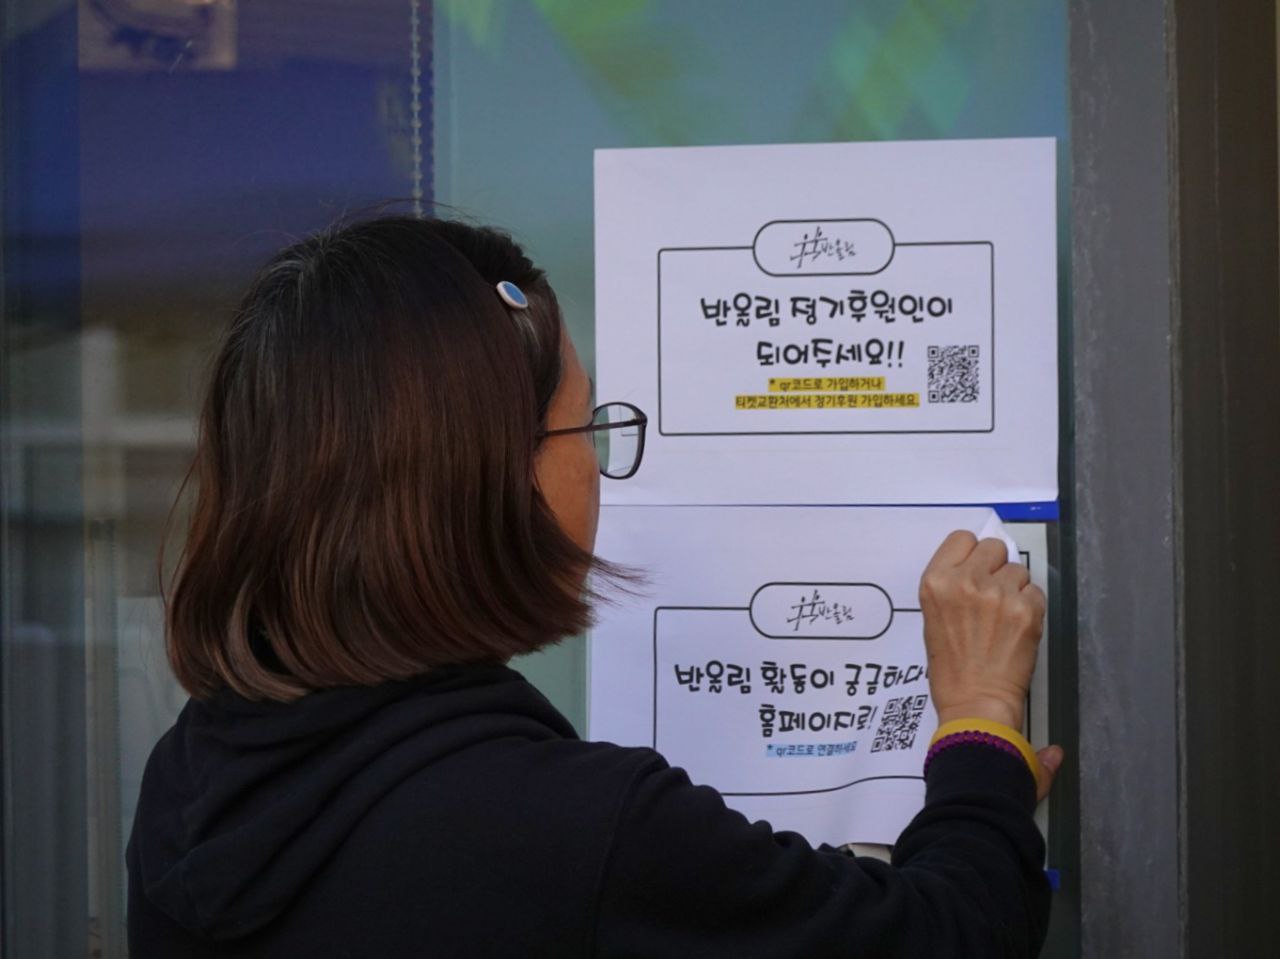 반올림
반올림 정기후원인이
되어주세요!!
* qr코드로 가입하거나
티켓교환처에서 정기후원 가입하세요.
반올림
반올림 활동이 궁금하다
홈페이지로!
* qr코드로 연결하세요